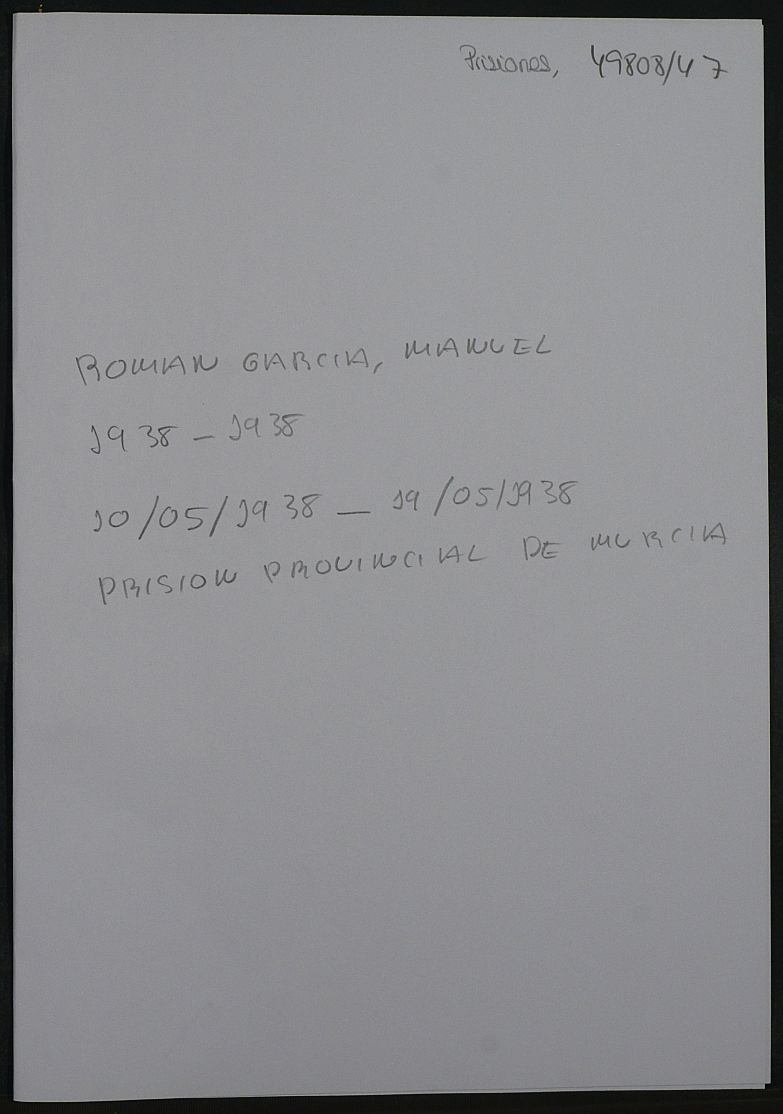 Prisiones, 49808/47
ROMAN GARCIA, MANUEL
1938 - 1938
10/05/1938 — 19/05/1938
PRISION PROVINCIAL DE MURCIA